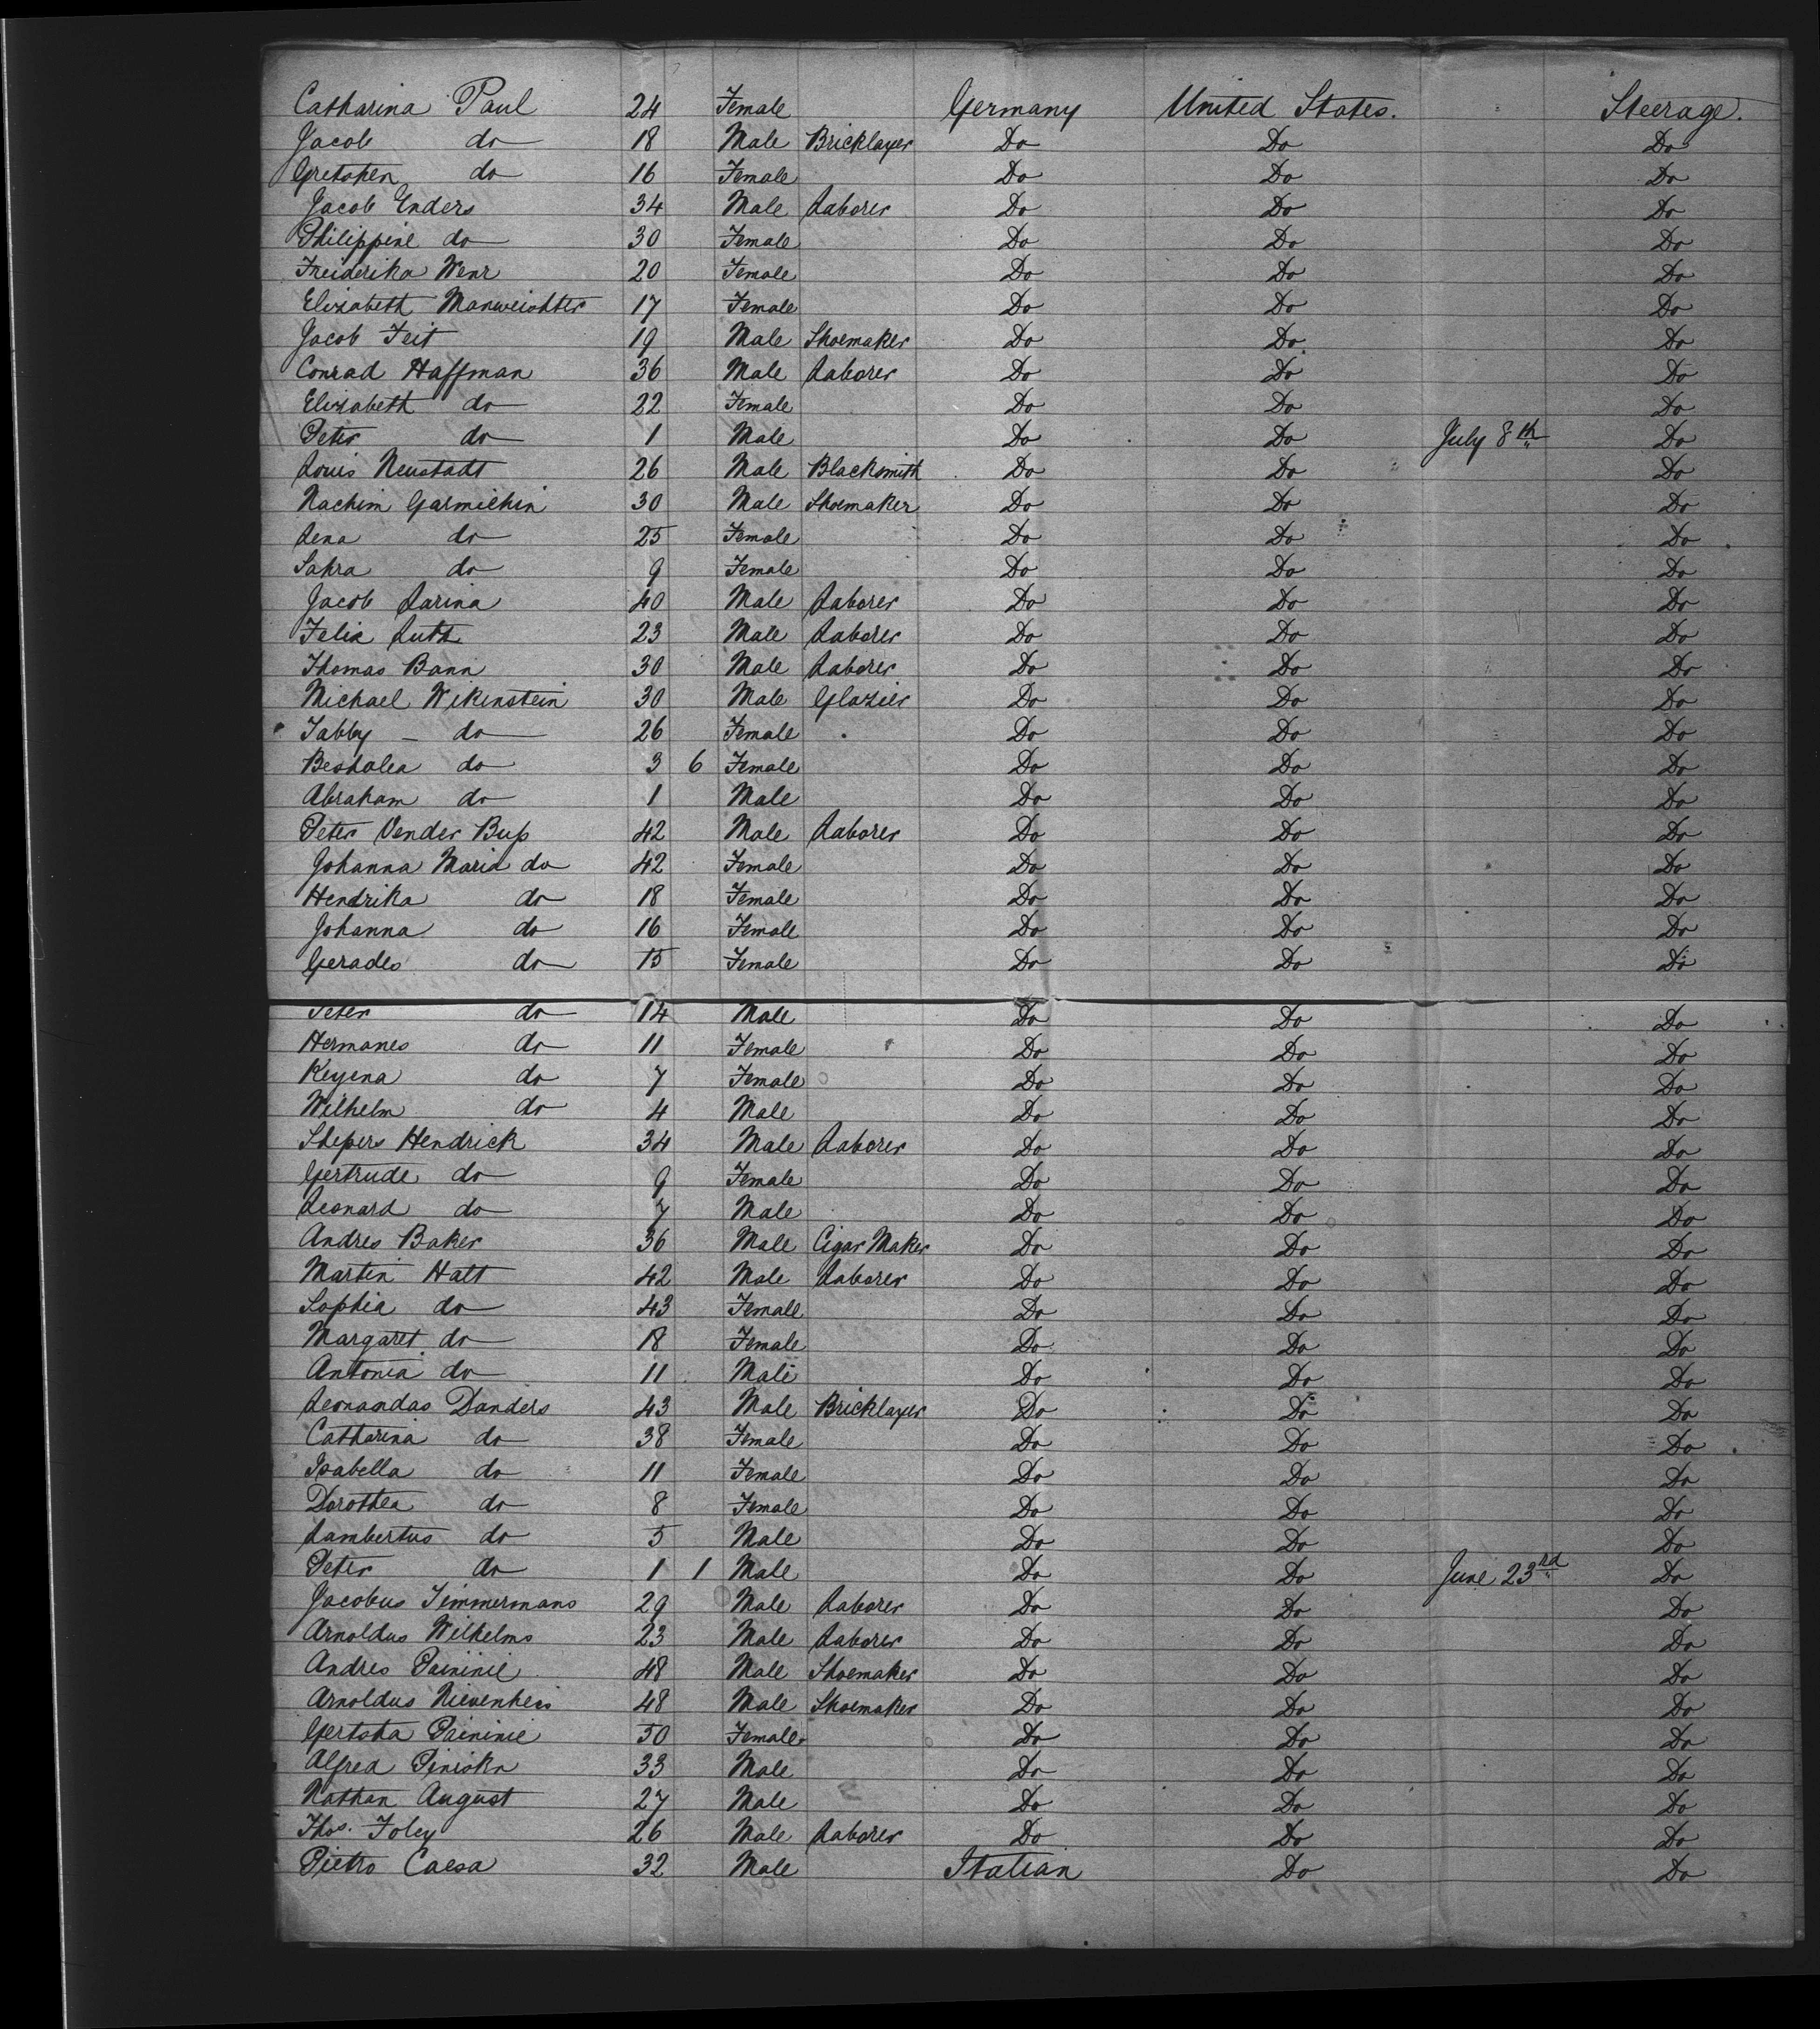 Catharina Paul 24 Female Germany United States. Steerage.
Jacob do 18 Male Bricklayer Do Do Do
Gretchen do 16 Female Do Do Do
Jacob Enders 34 Male Laborer Do Do Do
Philippine do 30 Female Do Do Do
Freiderika Wenr 20 Female Do Do Do
Elizabeth Manweichter 17 Female Do Do Do
Jacob Feit 19 Male Shoemaker Do Do Do
Conrad Haffman 36 Male Laborer Do Do Do
Elizabeth do 22 Female Do Do Do
Peter do 1 Male Do Do July 8th Do
Louis Neustadt 26 Male Blacksmith Do Do Do
Nachim Garmichin 30 Male Shoemaker Do Do Do
Lena do 25 Female Do Do Do
Sahra do 9 Female Do Do Do
Jacob Larina 40 Male Laborer Do Do Do
Felix Luth 23 Male Laborer Do Do Do
Thomas Bann 30 Male Laborer Do Do Do
Michael Wikenstein 30 Male Glazier Do Do Do
Tabby do 26 Female Do Do Do
Beshalea do 3 6 Female Do Do Do
Abraham do 1 Male Do Do Do
Peter Vender Bup 42 Male Laborer Do Do Do
Johanna Maria do 42 Female Do Do Do
Hendrika do 18 Female Do Do Do
Johanna do 16 Female Do Do Do
Gerades do 15 Female Do Do Do
Peter do 14 Male Do Do Do
Hermanes do 11 Female Do Do Do
Regena do 7 Female Do Do Do
Wilhelm do 4 Male Do Do Do
Shepers Hendrick 34 Male Laborer Do Do Do
Gertrude do 9 Female Do Do Do
Leonard do 7 Male Do Do Do
Andres Baker 36 Male Cigar Maker Do Do Do
Martin Halt 42 Male Laborer Do Do Do
Sophia do 43 Female Do Do Do
Margaret do 18 Female Do Do Do
Antonia do 11 Male Do Do Do
Leonandas Danders 43 Male Bricklayer Do Do Do
Catharina do 38 Female Do Do Do
Isabella do 11 Female Do Do Do
Dorothea do 8 Female Do Do Do
Lambertus do 5 Male Do Do Do
Peter do 1 1 Male Do Do June 23rd Do
Jacobus Timmermans 29 Male Laborer Do Do Do
Arnoldus Wilhelms 23 Male Laborer Do Do Do
Andres Paininie 48 Male Shoemaker Do Do Do
Arnoldus 48 Male Shoemaker Do Do Do
Gertcha Paininie 50 Female Do Do Do
Alfred 33 Male Do Do Do
Nathan August 27 Male Do Do Do
Thos. Foley 26 Male Laborer Do Do Do
Pietro Caesa 32 Male Italian Do Do